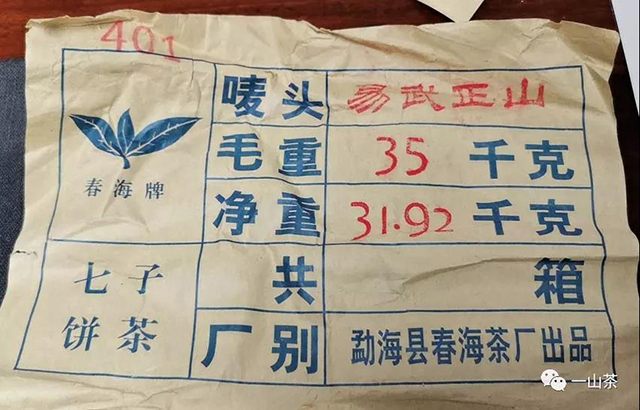 401
春海牌
唛头 易武正山
毛重 35 千克
净重 31.92 千克
七子
饼茶
共 箱
厂别 勐海县春海茶厂出品
一山茶